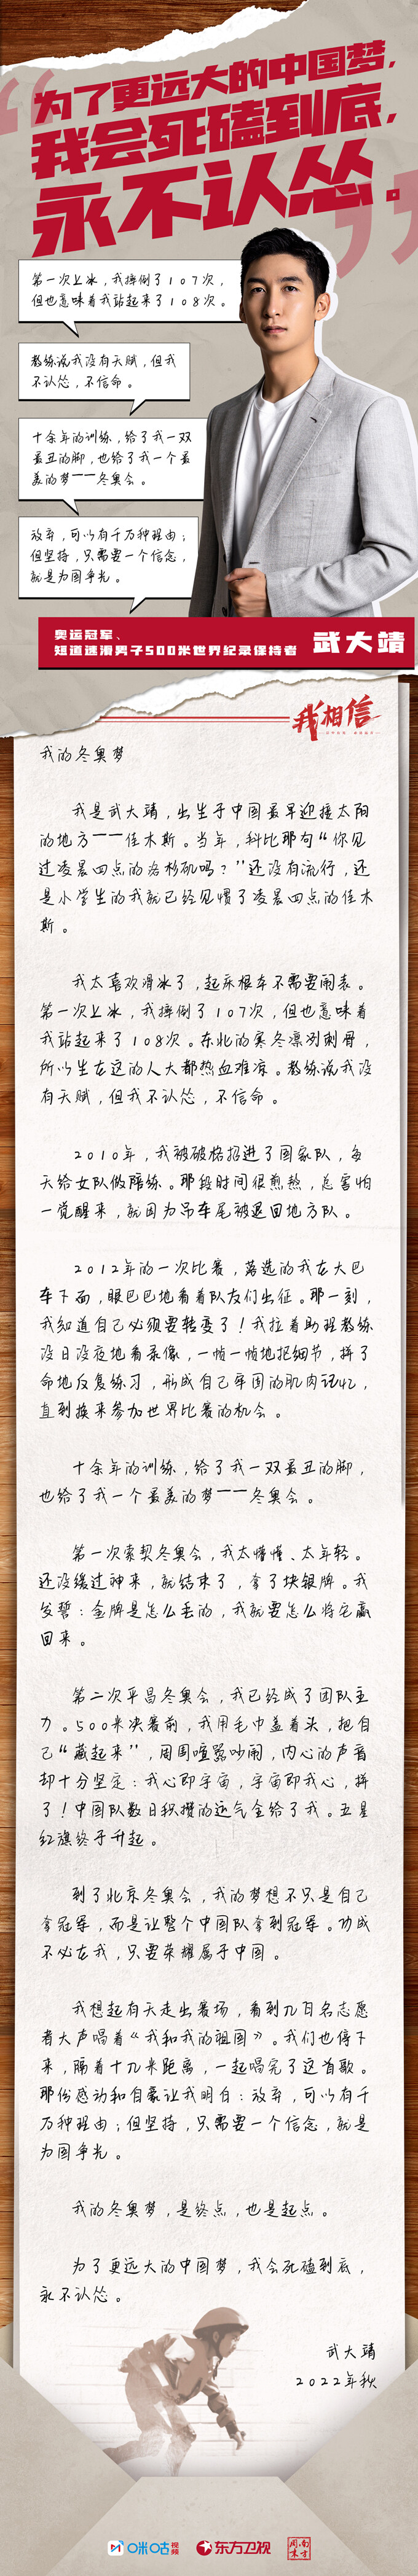 为了更远大的中国梦,
我会死磕到底,
永不认怂。
第一次上冰，我摔倒了107次，
但也意味着我站起来了108次。
教练说我没有天赋，但我
不认怂，不信命。
十余年的训练，给了我一双
最丑的脚，也给了我一个最
美的梦——冬奥会。
放弃，可以有千万种理由；
但坚持，只需要一个信念，
就是为国争光。
奥运冠军、
短道速滑男子500米世界纪录保持者
武大靖
我相信
我的冬奥梦
我是武大靖，出生于中国最早迎接太阳
的地方——佳木斯。当年，科比那句“你见
过凌晨四点的洛杉矶吗？”还没有流行，还
是小学生的我就已经见惯了凌晨四点的佳木
斯。
我太喜欢滑冰了，起床根本不需要闹表。
第一次上冰，我摔倒了107次，但也意味着
我站起来了108次。东北的寒冬凛冽刺骨，
所以生在这的人大都热血难凉。教练说我没
有天赋，但我不认怂，不信命。
2010年，我被破格招进了国家队，每
天给女队做陪练。那段时间很煎熬，总害怕
一觉醒来，就因为吊车尾被退回地方队。
2012年的一次比赛，落选的我在大巴
车下面，眼巴巴地看着队友们出征。那一刻，
我知道自己必须要转变了！我拉着助理教练
没日没夜地看录像，一帧一帧地把细节，拼了
命地反复练习，形成自己牢固的肌肉记忆，
直到换来参加世界比赛的机会。
十余年的训练，给了我一双最丑的脚，
也给了我一个最美的梦——冬奥会。
第一次索契冬奥会，我太懵懂、太年轻。
还没缓过神来，就结束了，拿了块银牌。我
发誓：金牌是怎么丢的，我就要怎么将它赢
回来。
第二次平昌冬奥会，我已经成了团队主
力。500米决赛前，我用毛巾盖着头，把自
己“藏起来”，周围喧嚣吵闹，内心的声音
却十分坚定：我心即宇宙，宇宙即我心，拼
了！中国队数日积攒的运气全给了我。五星
红旗终于升起。
到了北京冬奥会，我的梦想不只是自己
拿冠军，而是让整个中国队拿到冠军。功成
不必在我，只要荣耀属于中国。
我想起有天走出赛场，看到几百名志愿
者大声唱着《我和我的祖国》。我们也停下
来，隔着十几米距离，一起唱完了这首歌。
那份感动和自豪让我明白：放弃，可以有千
万种理由；但坚持，只需要一个信念，就是
为国争光。
我的冬奥梦，是终点，也是起点。
为了更远大的中国梦，我会死磕到底，
永不认怂。
武大靖
2022年秋
咪咕视频 东方卫视 南方周末